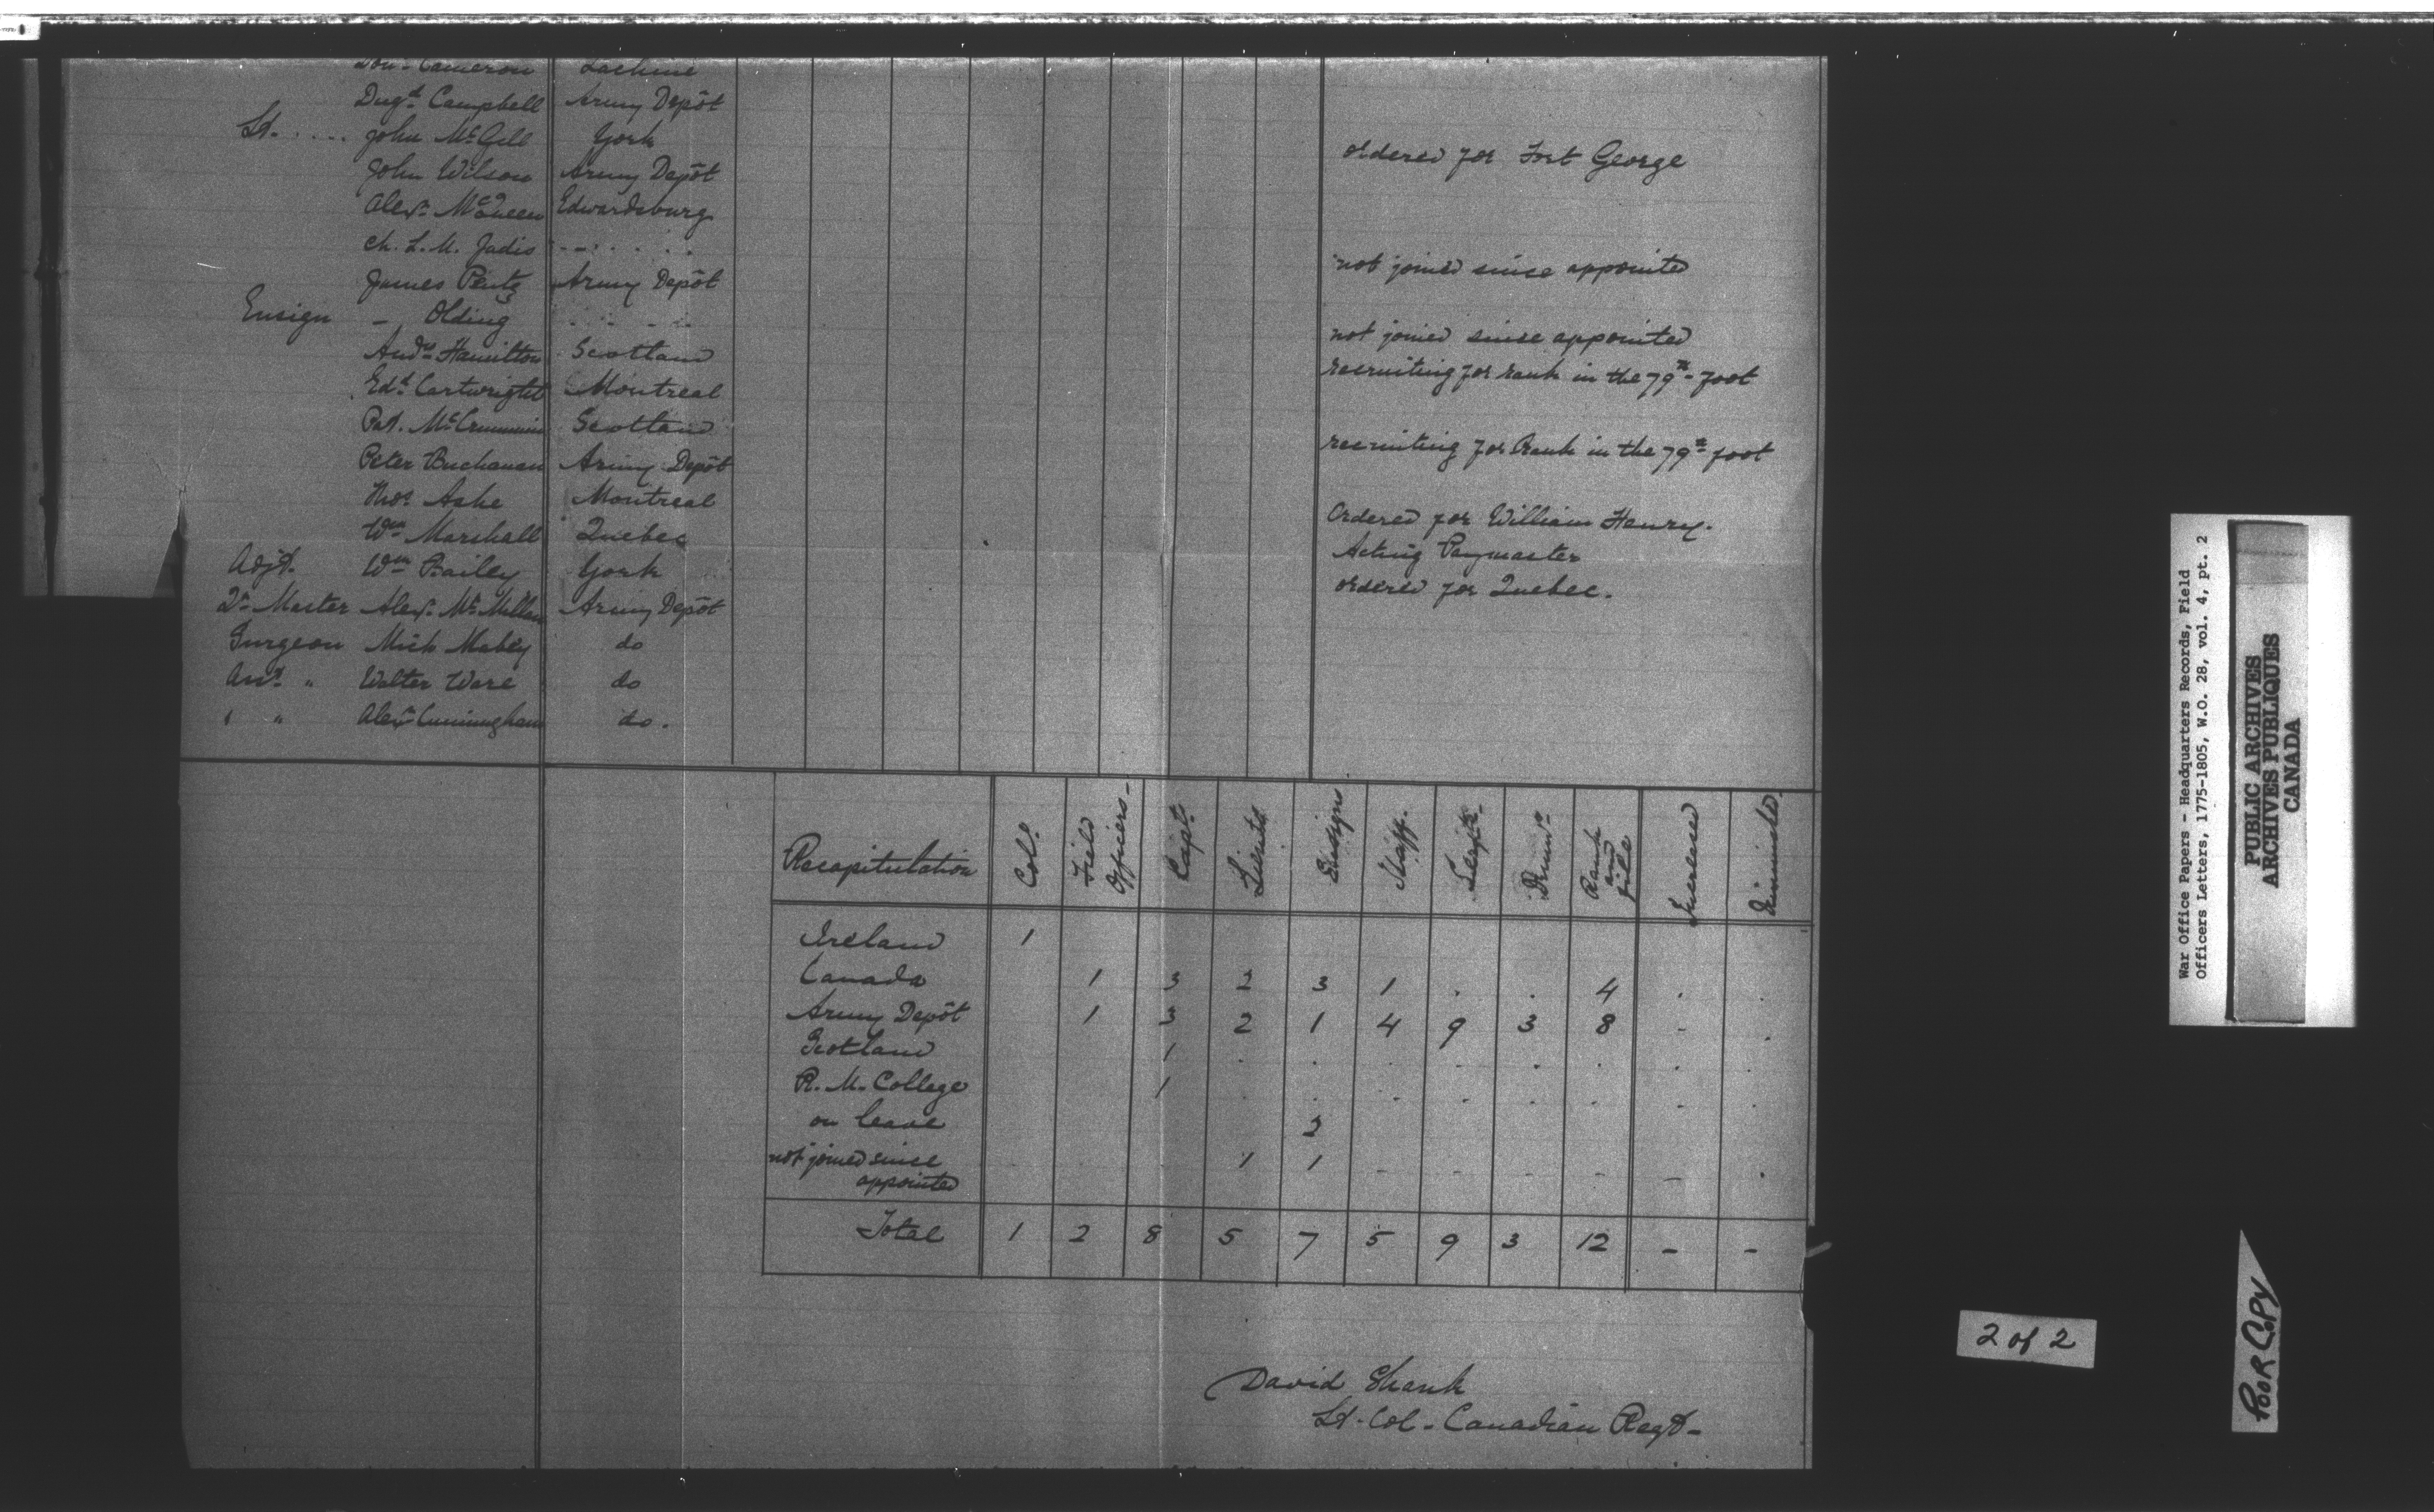 Don. Cameron Lachine
Dugd. Campbell Army Depôt
Lt. .... John McGill York ordered for Fort George
John Wilson Army Depôt
Alexr. McQueen Edwardsburg
Ch. L. M. Jadis - - . . . . not joined since appointed
James Pentz Army Depôt
Ensign - Olding . . . - . . not joined since appointed
Andw. Hamilton Scotland recruiting for rank in the 79th foot
Edd. Cartwright Montreal
Pat. McCrummin Scotland recruiting for Rank in the 79th foot
Peter Buchanan Army Depôt
Thos. Ashe Montreal Ordered for William Henry.
Wm Marshall Quebec Acting Paymaster
Adjt. Wm Bailey York ordered for Quebec.
Qr. Master Alexr. McMillan Army Depôt
Surgeon Mich Mabey do
Asst. " Walter Ware do
" " Alexr Cunningham do.
Recapitulation Col. Field Officers - Capt. Lieuts Ensigns Staff. Serjts. Drumrs Rank and file Increased Diminished.
Ireland 1
Canada 1 3 2 3 1 . . 4 . .
Army Depôt 1 3 2 1 4 9 3 8 - .
Scotland 1 . . . - . . . .
R. M. College 1 . . - - - . - .
on leave 2
not joined since appointed 1 1 - - - - - .
Total 1 2 8 5 7 5 9 3 12 - -
David Shank
Lt. Col - Canadian Regt -
War Office Papers - Headquarters Records, Field
Officers Letters, 1775-1805, W.O. 28, vol. 4, pt. 2
PUBLIC ARCHIVES
ARCHIVES PUBLIQUES
CANADA
2 of 2
POOR COPY